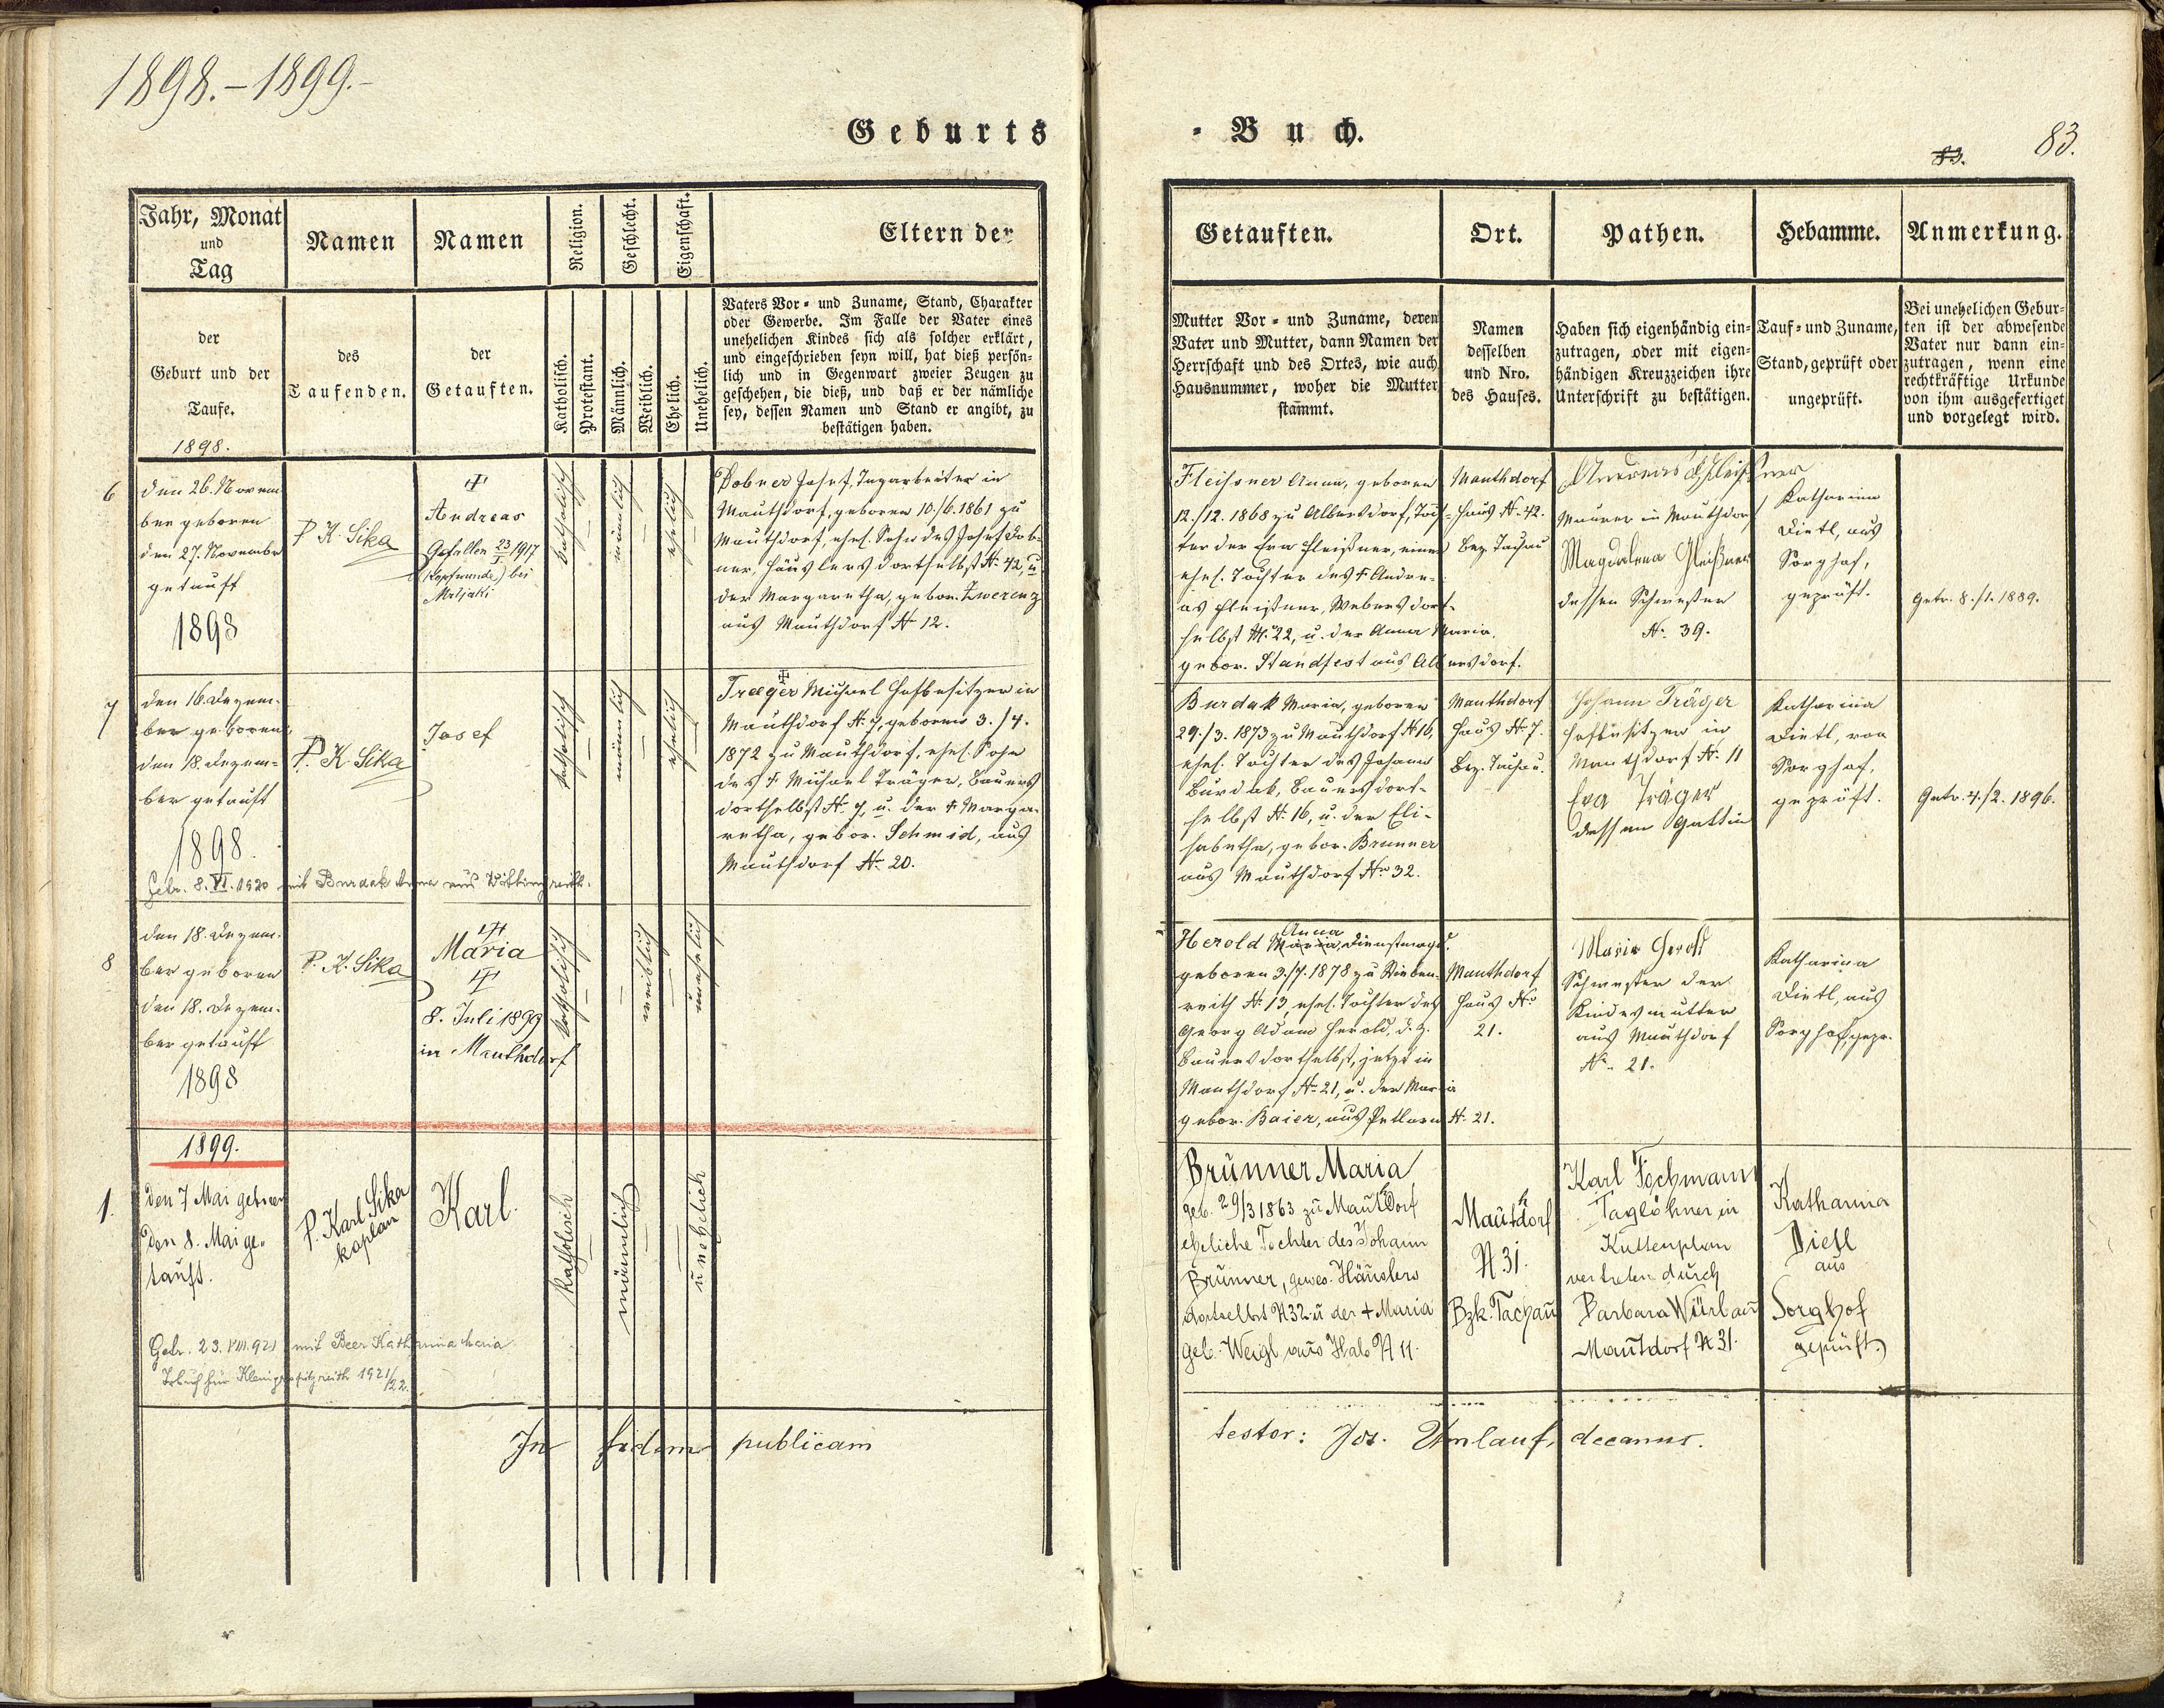 1898.-1899.-
Geburts
Jahr, Monat
und
Tag
Namen
Namen
Religion.
Geschlecht.
Eigenschaft.
Eltern der
der
Geburt und der
Taufe.
1898.
des
Taufenden.
der
Getauften.
Katholisch.
Protestamt.
Männlich.
Weiblich.
Ehelich.
Unehelich.
Vaters Vor- und Zuname, Stand, Charakter
oder Gewerbe. Im Falle der Vater eines
unehelichen Kindes sich als solcher erklärt,
und eingeschrieben seyn will, hat dieß persön-
lich und in Gegenwart zweier Zeugen zu
geschehen, die dieß, und daß er der nämliche
sey, dessen Namen und Stand er angibt, zu
bestätigen haben.
6
den 26. Novem-
ber geboren
den 27. November
getauft
1898
P. K. Sika
Andreas
Gefallen 23/I 1917
(Kopfwunde) bei
katholisch
männlich
ehelich
Dobner Josef, Tagarbeiter in
Mauthdorf, geboren 10./6. 1861 zu
Mauthdorf, ehel. Sohn des Josef Dob-
ner, Häuslers dortselbst N. 42, u.
der Margaretha, gebor. Zwerenz
aus Mauthdorf N. 12.
7
den 16. Dezem-
ber geboren,
den 18. Dezem-
ber getauft
1898.
P. K. Sika
Josef
katholisch
männlich
ehelich
Traeger Michael Hofbesitzer in
Mauthdorf N. 7, geboren 3./4.
1872 zu Mauthdorf, ehel. Sohn
des † Michael Träger, Bauers
dortselbst N. 7, u. der † Marga-
retha, gebor. Schmid, aus
Mauthdorf N. 20.
Getr. 8. VI. 1920 mit Burdak Anna aus
8
den 18. Dezem-
ber geboren
den 18. Dezem-
ber getauft
1898
P. K. Sika
Maria
8. Juli 1899
in Mauthdorf
katholisch
weiblich
unehelich
1899.
1.
den 7 Mai geboren
den 8. Mai ge-
tauft.
P. Karl Sika
kaplan
Karl.
katholisch
männlich
unehelich
Getr. 23. VIII. 921 mit Beer Katharina Maria
1921/22.
In fidem publicam
- Buch.
83.
83.
Getauften.
Ort.
Pathen.
Hebamme.
Anmerkung.
Mutter Vor- und Zuname, deren
Vater und Mutter, dann Namen der
Herrschaft und des Ortes, wie auch
Hausnummer, woher die Mutter
stammt.
Namen
desselben
und Nro.
des Hauses.
Haben sich eigenhändig ein-
zutragen, oder mit eigen-
händigen Kreuzzeichen ihre
Unterschrift zu bestätigen.
Tauf- und Zuname,
Stand, geprüft oder
ungeprüft.
Bei unehelichen Gebur-
ten ist der abwesende
Vater nur dann ein-
zutragen, wenn eine
rechtkräftige Urkunde
von ihm ausgefertiget
und vorgelegt wird.
Fleissner Anna, geboren
12./12. 1868 zu Albersdorf, Toch-
ter der Eva Fleißner, einer
ehel. Tochter des † Andre-
as Fleißner, Webers dort-
selbst N. 22, u. der Anna Maria,
gebor. Standfest aus Albersdorf.
Mauthdorf
Haus N. 42.
Bez. Tachau
Andreas Fleißner
Maurer in Mauthdorf
Magdalena Fleißner
dessen Schwester
N. 39.
Katharina
Dietl, aus
Sorghof,
geprüft.
Getr. 8./1. 1889.
Burdak Maria, geboren
29./3. 1873 zu Mauthdorf N. 16,
ehel. Tochter des Johann
Burdak, Bauers dort-
selbst N. 16, u. der Eli-
sabetha, gebor. Brunner
aus Mauthdorf N. 32.
Mauthdorf
Haus N. 7.
Bez. Tachau.
Johann Träger
Hofbesitzer in
Mauthdorf N. 11
Eva Träger
dessen Gattin
Katharina
Dietl, von
Sorghof,
geprüft.
Getr. 4./2. 1896.
Anna
Herold Maria, Dienstmagd
geboren 3./7. 1878 zu
reith N. 13, ehel. Tochter des
Georg Adam Herold, d. Z.
Bauers dortselbst, jetzt in
Mauthdorf N. 21, u. der Maria
gebor. Baier, aus Petlarn N. 21.
Mauthdorf
Haus No
21.
Maria Herold
Schwester der
Kindesmutter
aus Mauthdorf
N. 21.
Katharina
Dietl, aus
Sorghof, gepr.
Brunner Maria
geb. 29/3 1863 zu Mauthdorf
eheliche Tochter des Johann
Brunner, gewes. Häuslers
dortselbst N 32 u der † Maria
geb. Weigl aus Hals N 11.
Mauthdorf
N 31.
Bzk. Tachau
Karl Fochmann
Taglöhner in
Kuttenplan
vertreten durch
Barbara Würl aus
Mautdorf N 31.
Katharina
Dietl
aus
Sorghof
geprüft.
testor: Jos. Umlauf, decanus.